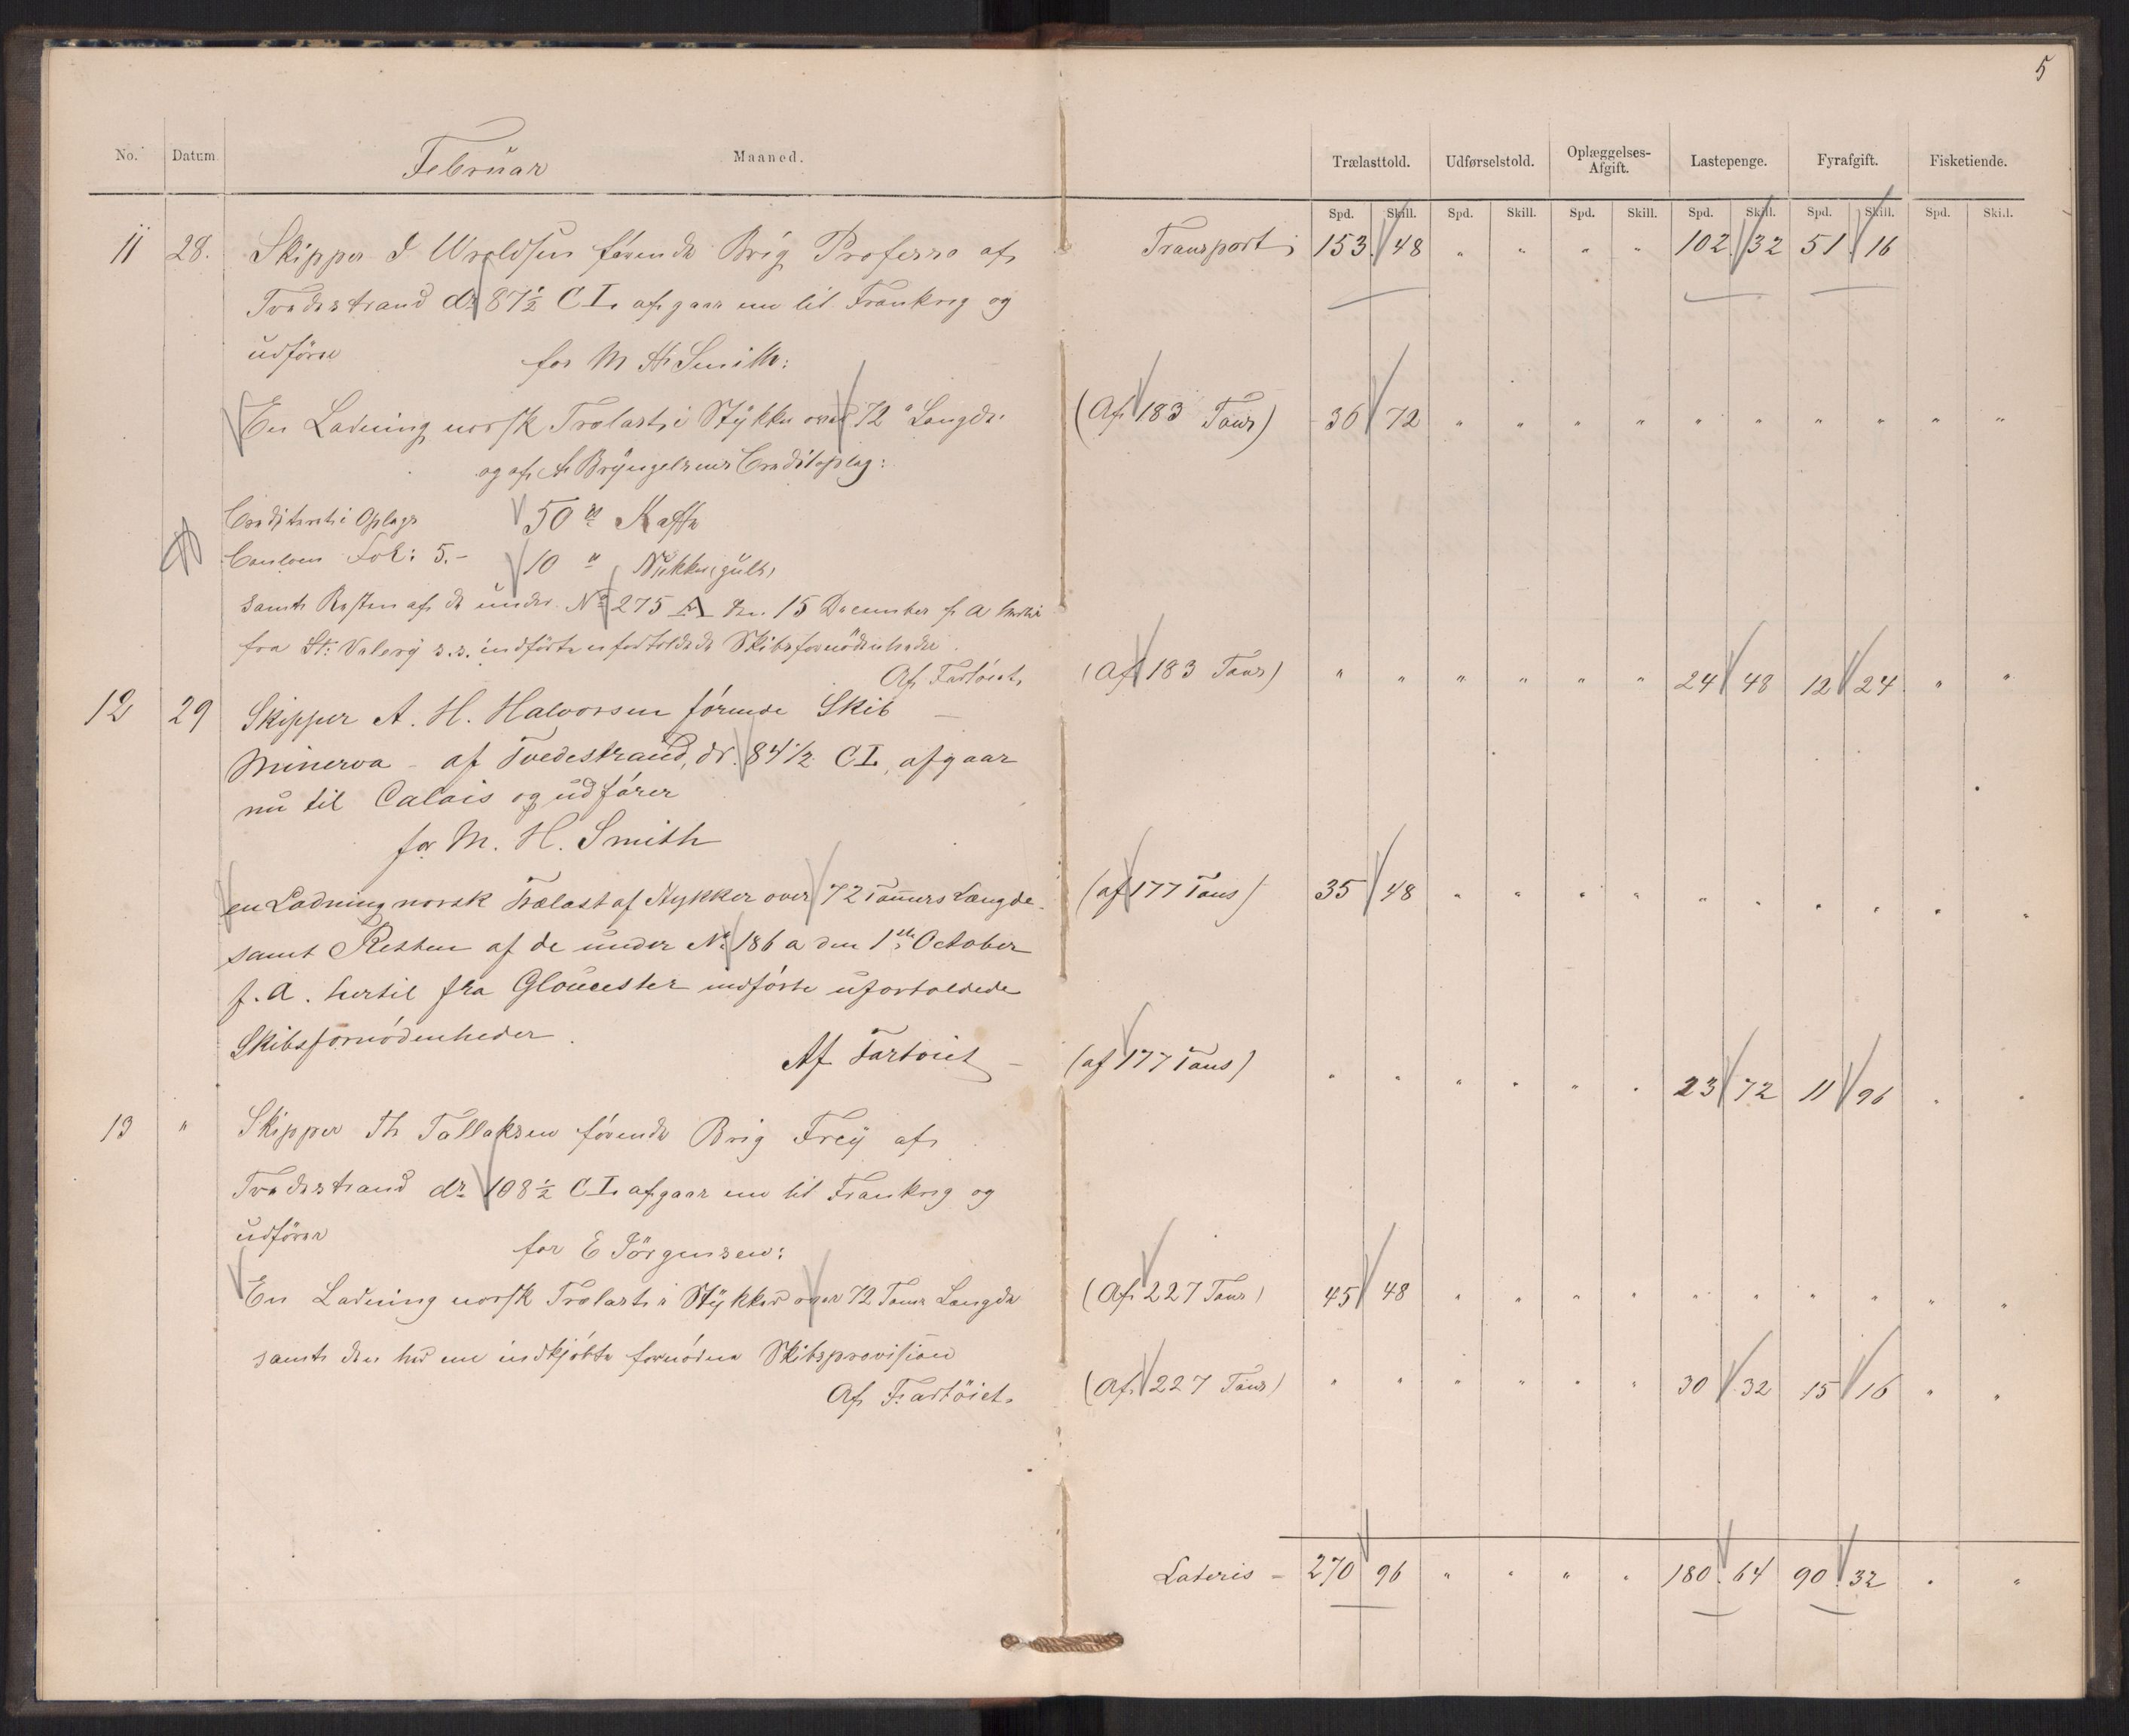 5
No. Datum Februar Maaned. Trælasttold. Udførselstold. Oplæggelses-Afgift. Lastepenge. Fyrafgift. Fisketiende.
Spd. Skill. Spd. Skill. Spd. Skill. Spd. Skill. Spd. Skill. Spd. Skill.
11 28. Skipper Wroldsen førende Brig Professo af Transport 153 48 " " " " 102 32 51 16
Tvedestrand dr. 87½ CL afgaar nu til Frankrig og
udfører for M H Smith:
En Ladning norsk Trælast i Stykker over 72" Længde (Af 183 Tons) 36 72 " " " " " " " " " "
og af A Bryngelsens Creditoplag:
Creditoplags 50 ℔ Kaffe
Contoens Fol: 5.- 10 "
samt Resten af de under No 275 A den 15 December f. A. hertil
fra St: Valery s.s. indførte ufortoldede Skibsfornødenheder.
Af Fartøiet (Af 183 Tons) " " " " " " 24 48 12 24 " "
12 29 Skipper A. H. Halvorsen førende Skib
Minerva - af Tvedestrand, dr. 84½ CL, afgaar
nu til Calais og udfører
for M. H. Smith
en Ladning norsk Trælast af Stykker over 72 Tommers Længde (af 177 Tons) 35 48 " " " " " " " " " "
samt Resten af de under No 186 a den 1ste October
f. A. hertil fra Gloucester indførte ufortoldede
Skibsfornødenheder.
Af Fartøiet - (af 177 Tons) " " " " " " 23 72 11 96 " "
13 " Skipper Th Tallaksen førende Brig Frey af
Tvedestrand dr. 108½ CL afgaar nu til Frankrig og
udfører for E Jörgensen:
En Ladning norsk Trælast i Stykker over 72 Toms Længde (Af 227 Tons) 45 48 " " " " " " " " " "
samt den her indkjøbte fornødne Skibsprovision
Af Fartöiet. (Af 227 Tons) " " " " " " 30 32 15 16 " "
Lateris - 270 96 " " " " 180 64 90 32 " "